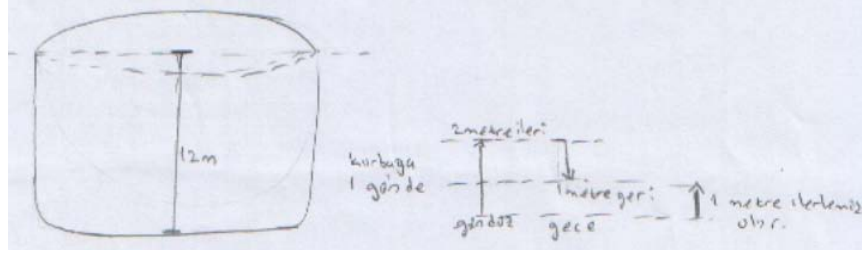 12m
2 metre ileri
kurbağa
1 günde
1 metre geri
gündüz gece
1 metre ilerlemiş
olur.